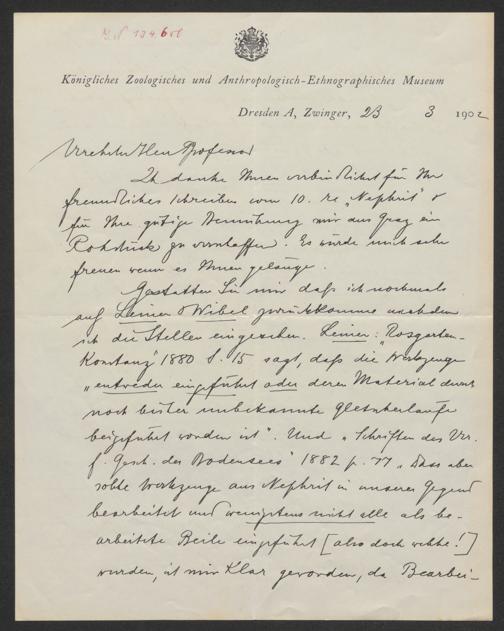 Königliches Zoologisches und Anthropologisch-Ethnographisches Museum
Dresden A, Zwinger, 23 3 1902
Verehrter Herr Professor
Ich danke Ihnen verbindlichst für Ihr
freundliches Schreiben vom 10. re „Nephrit" &
für Ihre gütige Bemühung mir aus Graz ein
Rohstück zu verschaffen. Es würde mich sehr
freuen wenn es Ihnen gelänge.
Gestatten Sie mir daß ich nochmals
auf Leiner & Wibel zurückkomme nachdem
ich die Stellen eingesehen. Leiner: „Rosgarten-
Konstanz" 1880 S. 15 sagt, daß die Werkzeuge
„entweder eingeführt oder deren Material durch
noch bisher unbekannte Gletscherläufe
beigeführt worden ist". Und „Schriften des Ver.
f. Gesch. des Bodensees" 1882 p. 77 „Dass aber
solche Werkzeuge aus Nephrit in unserer Gegend
bearbeitet und wenigstens nicht alle als be-
arbeitete Beile eingeführt [also doch welche!]
wurden, ist mir klar geworden, da Bearbei-